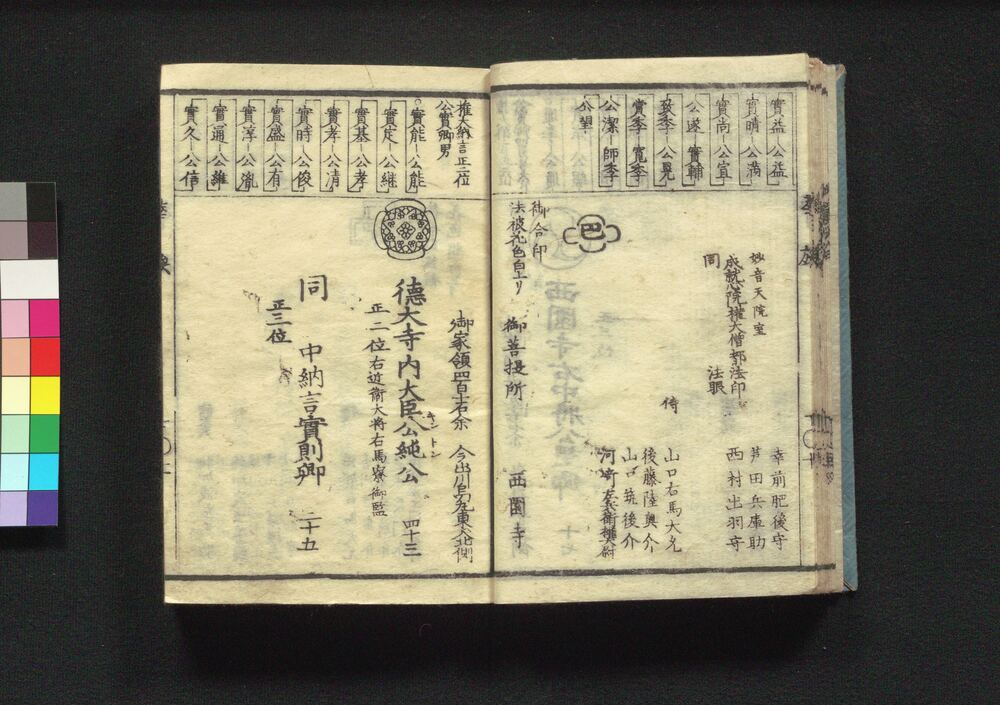 實益 公益
實晴 公満
實尚 公宜
公遂 實輔
致季 公晃
賞季 寛季
公潔 師季
公望
妙音天院室
成就心院權大僧都法印
同 法眼
幸前肥後守
芦田兵庫助
西村出羽守
侍
山口右馬大允
後藤陸奥介
山口筑後介
河﨑左兵衛權大尉
巴
御合印
法被花色白上リ
御菩提所 西園寺
權大納言正三位
公實卿男
實能 公能
實定 公継
實基 公孝
實孝 公清
實時 公俊
實盛 公有
實淳 公胤
實通 公維
實久 公信
御家領四百十石余 今出川烏丸東入北側
德大寺内大臣公純公 四十三
キントン
正二位右近衞大将右馬寮御監
同 中納言實則卿 二十五
正三位